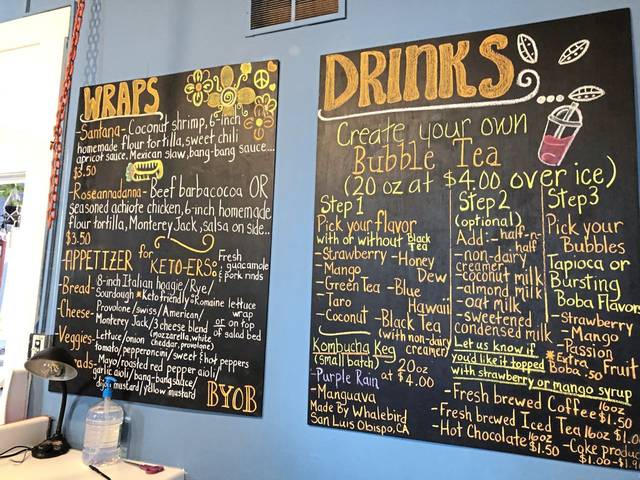 WRAPS
-Santana- Coconut shrimp, 6-inch
homemade flour tortilla, sweet chili
apricot sauce, Mexican slaw, bang-bang sauce...
$3.50
-Roseannadanna- Beef barbacocoa OR
seasoned achiote chicken, 6-inch homemade
flour tortilla, Monterey Jack, salsa on side..
$3.50
APPETIZER for KETO-ERS: Fresh guacamole & pork rinds
-Bread- 8-inch Italian hoagie/Rye/
Sourdough *Keto friendly: Romaine lettuce wrap
or on top of salad bed
-Cheese- Provolone/swiss/American/
Monterey Jack/3 cheese blend
(mozzarella, white cheddar, provolone)
-Veggies- Lettuce/onion/
tomato/pepperoncini/sweet & hot peppers
Mayo/roasted red pepper aioli/
garlic aioli/bang-bang sauce/
mustard/yellow mustard
BYOB
DRINKS
Create your own
Bubble Tea
(20 oz at $4.00 over ice)
Step 1
Pick your flavor
with or without Black Tea
-Strawberry -Honey Dew
-Mango
-Green Tea -Blue Hawaii
-Taro
-Coconut -Black Tea
(with non-dairy creamer)
Step 2
(optional)
Add:-half-n-half
-non-dairy creamer
-coconut milk
-almond milk
-oat milk
-sweetened condensed milk
Step 3
Pick your
Bubbles
Tapioca or
Bursting
Boba Flavors
-Strawberry
-Mango
-Passion Fruit
*Extra Boba .50
Let us know if
you'd like it topped
with strawberry or mango syrup
Kombucha Keg
(small batch) 20oz at $4.00
-Purple Rain
-Manguava
Made By Whalebird
San Luis Obispo, CA
-Fresh brewed Coffee 16oz $1.50
-Fresh brewed Iced Tea 16oz $1.00
-Hot Chocolate 16oz $1.50 -Coke produc
$1.00-$1.9